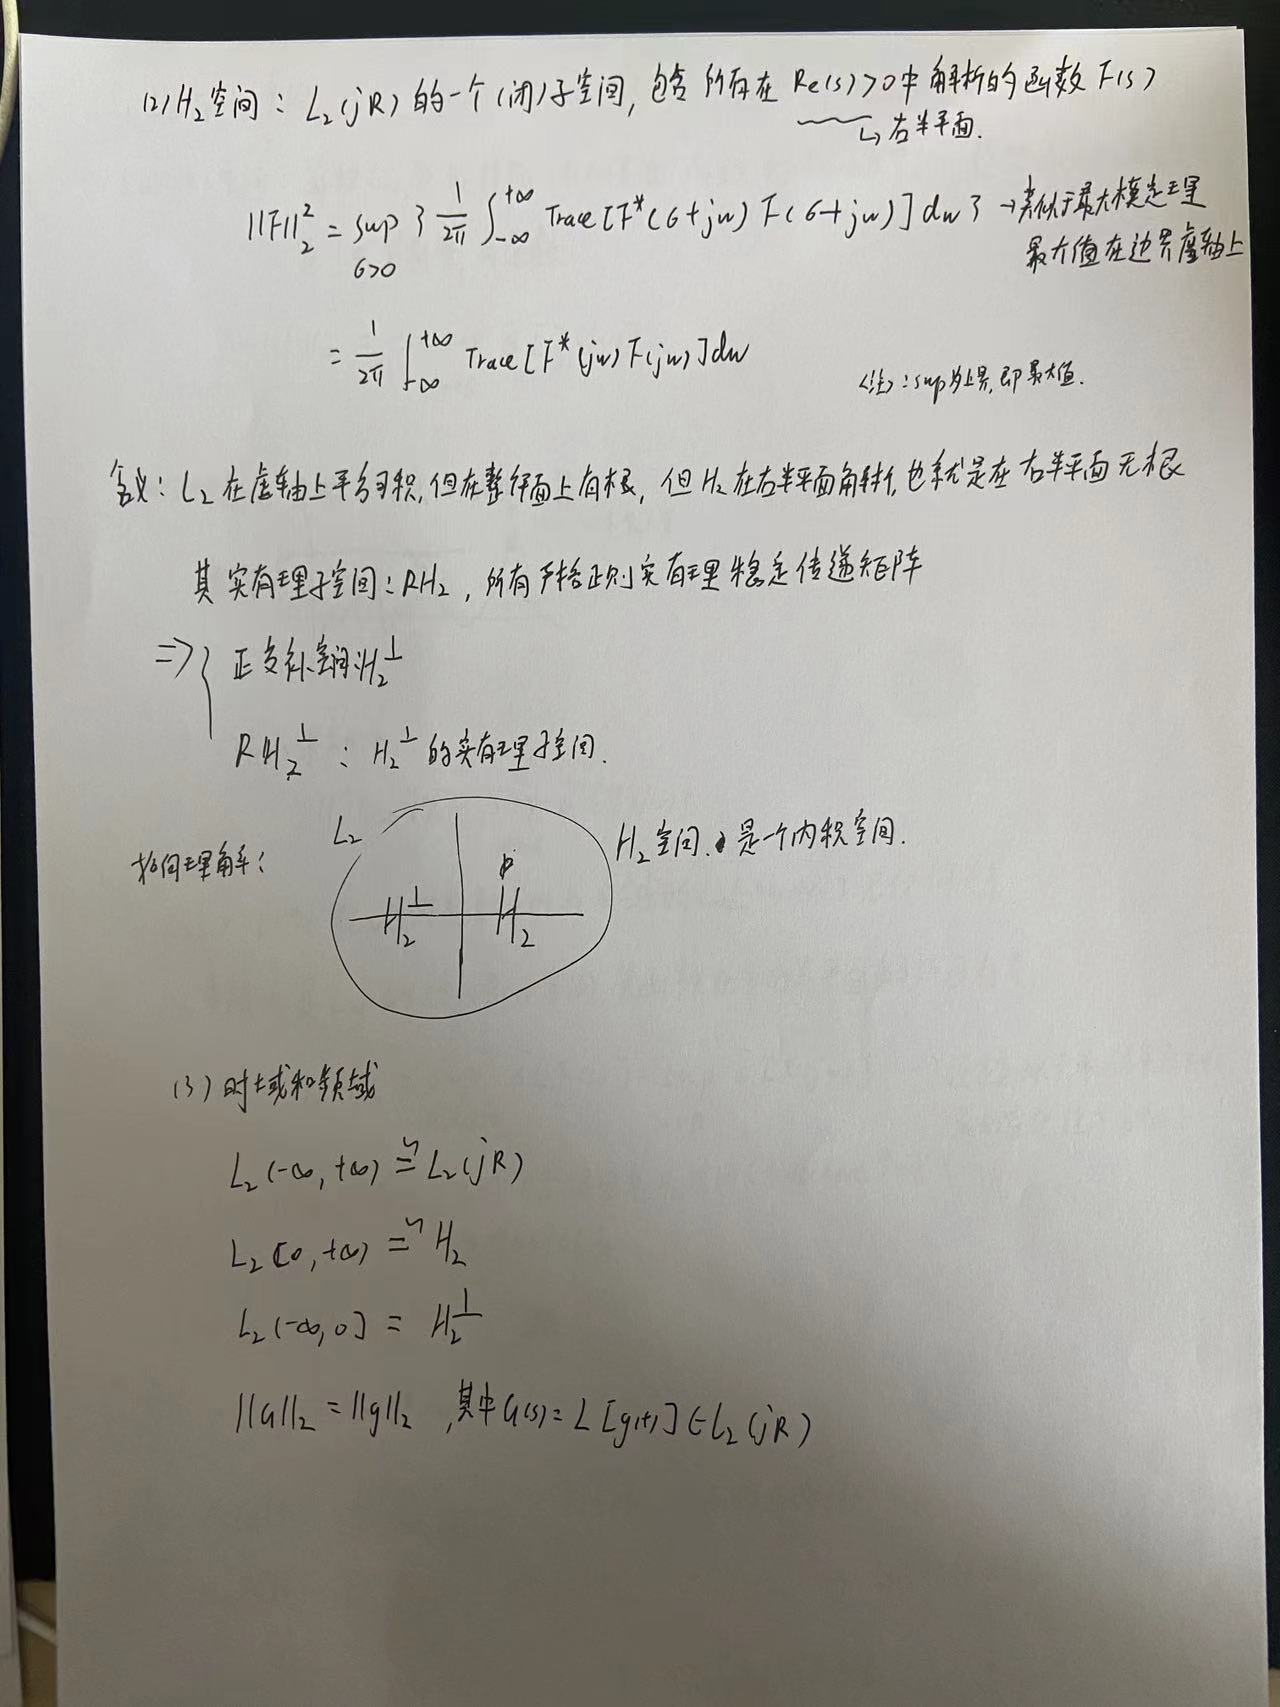 (2) H₂空间：L₂(jR)的一个(闭)子空间，包含所有在Re(s)>0中解析的函数F(s)
↳右半平面.
||F||₂² = sup_{σ>0} { 1/2π ∫_{-∞}^{+∞} Trace[F*(σ+jw) F(σ+jw)]dw } → 类似于最大模定理
最大值在边界虚轴上
= 1/2π ∫_{-∞}^{+∞} Trace[F*(jw)F(jw)]dw
<注>：sup为上界,即最大值.
含义：L₂在虚轴上平方可积,但在整个平面上有根，但H₂在右半平面解析,也就是在右半平面无根
其实有理子空间：RH₂，所有严格正则实有理稳定传递矩阵
⇒{ 正交补空间:H₂^⊥
RH₂^⊥ ： H₂^⊥的实有理子空间.
如何理解：
L₂
H₂^⊥ H₂
H₂空间.是一个内积空间.
(3) 时域和频域
L₂(-∞,+∞) ≅ L₂(jR)
L₂[0,+∞) ≅ H₂
L₂(-∞,0] = H₂^⊥
||G||₂ = ||g||₂ ,其中G(s)=L[g(t)]∈L₂(jR)